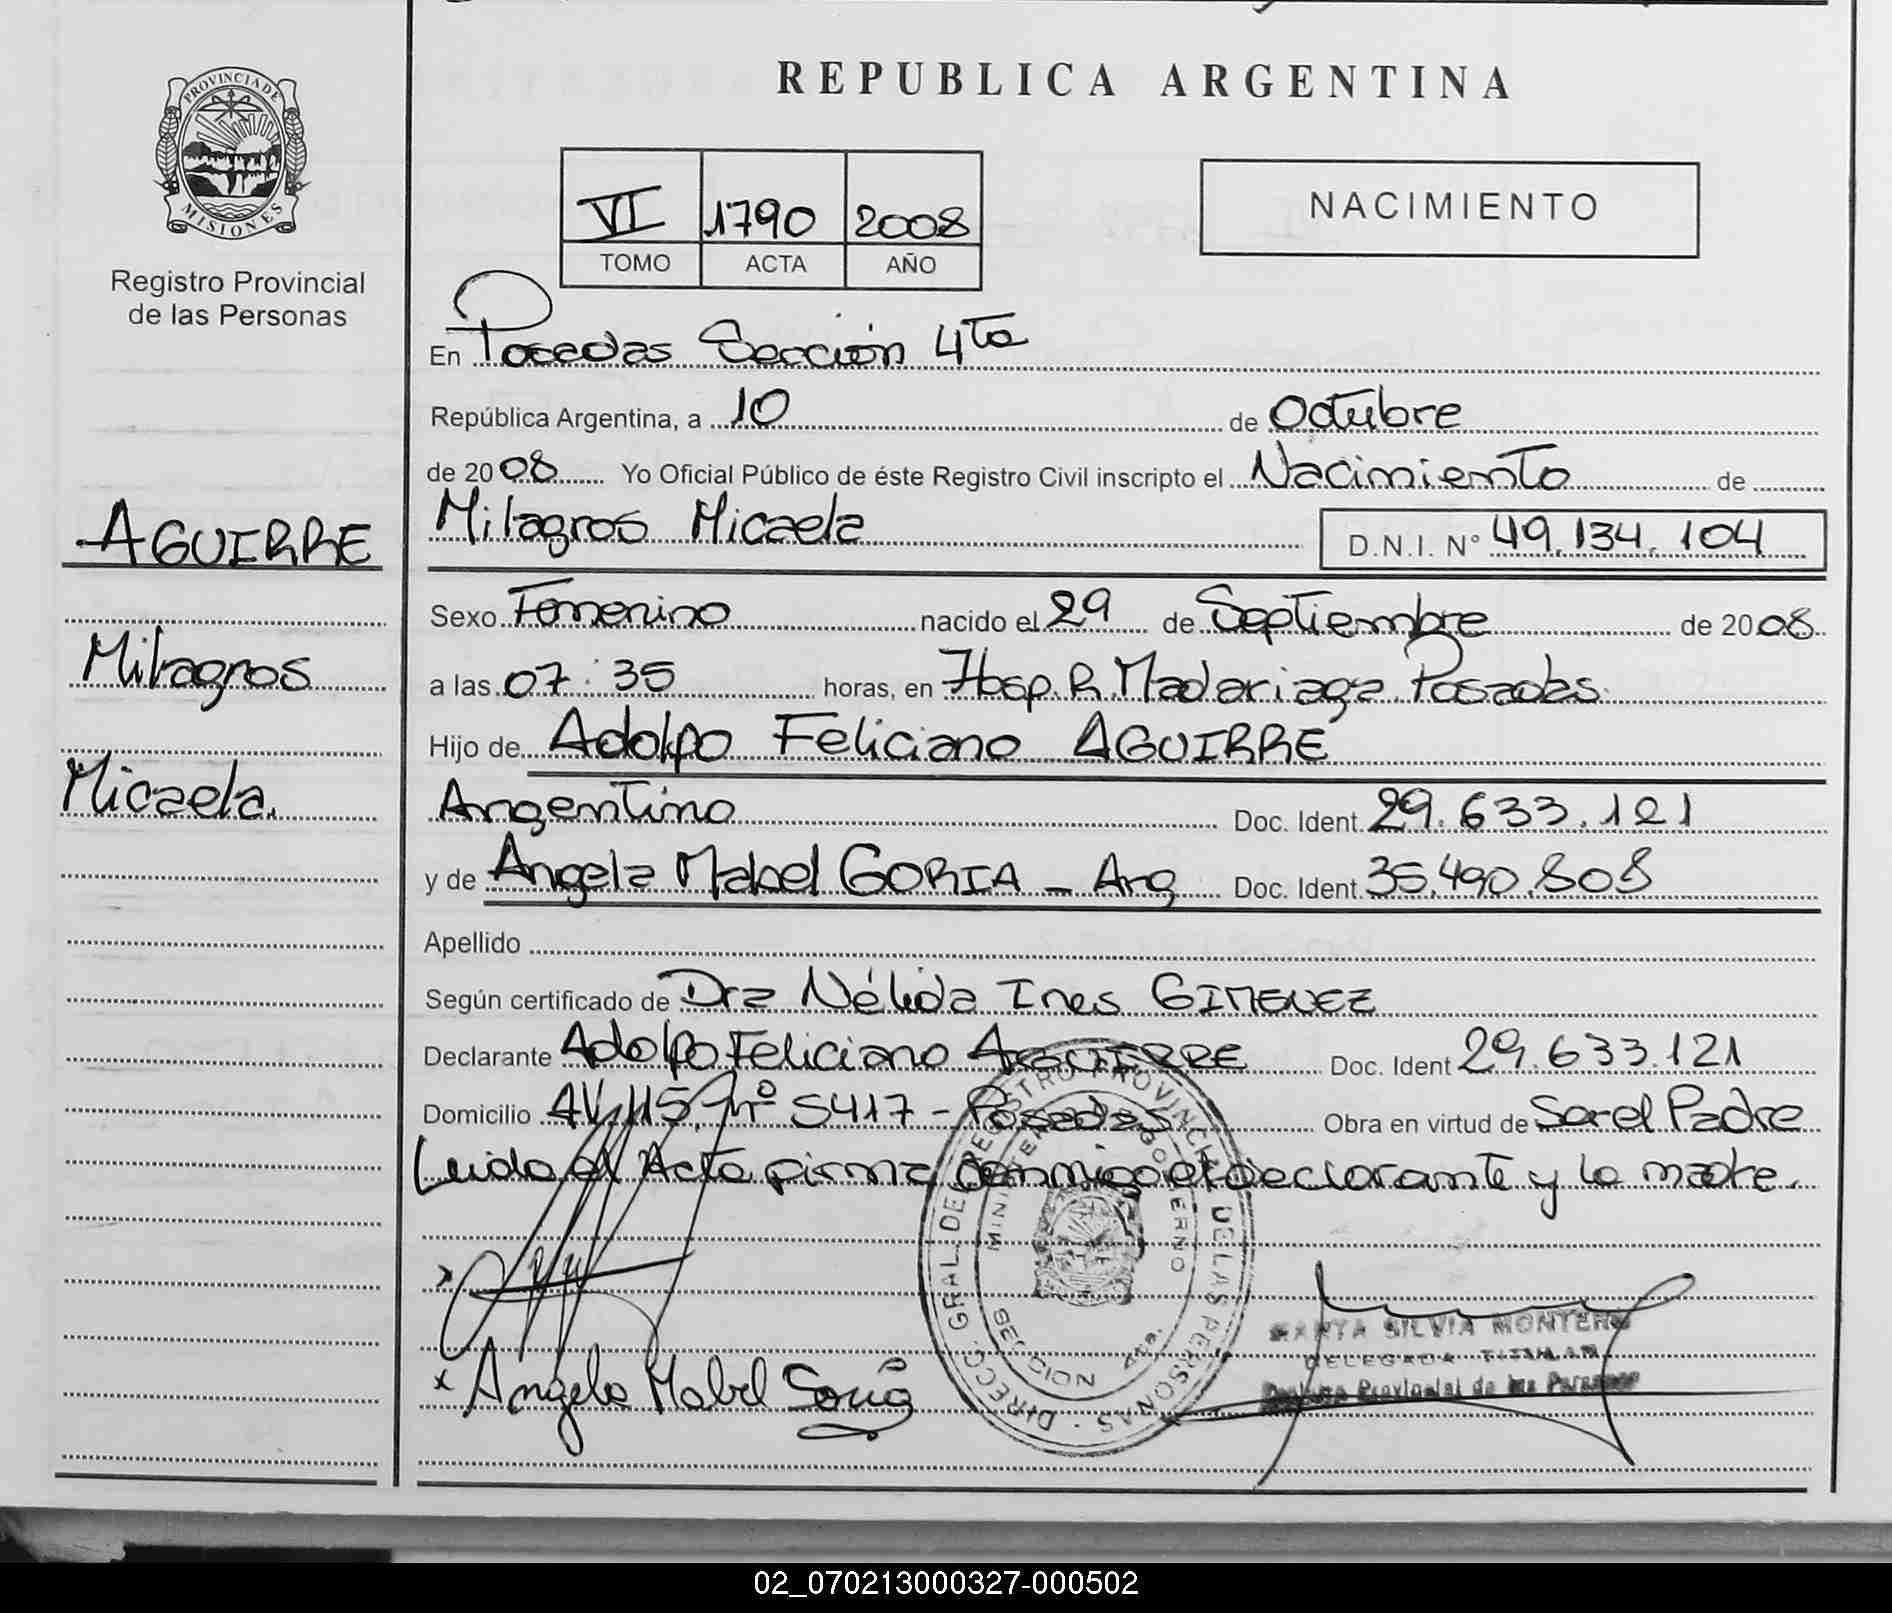 PROVINCIA DE
MISIONES
Registro Provincial
de las Personas
AGUIRRE
Milagros
Micaela.
REPUBLICA ARGENTINA
VI 1790 2008
TOMO ACTA AÑO
NACIMIENTO
En Posadas Sección 4ta
República Argentina, a 10 de Octubre
de 2008 Yo Oficial Público de éste Registro Civil inscripto el Nacimiento de
Milagros Micaela D.N.I. N° 49.134.104
Sexo Femenino nacido el 29 de Septiembre de 2008
a las 07:35 horas, en Hosp. R. Madariaga. Posadas.
Hijo de Adolfo Feliciano AGUIRRE
Argentino Doc. Ident. 29.633.121
y de Angela Mabel SORIA - Arg Doc. Ident. 35.490.808
Apellido
Según certificado de Dra Nélida Ines GIMENEZ
Declarante Adolfo Feliciano AGUIRRE Doc. Ident 29.633.121
Domicilio AV. 115, Nº 5417 - Posadas Obra en virtud de Ser el Padre
Leida el Acta firma conmigo el declarante y la madre.
DIRECC. GRAL. DEL REGISTRO PROVINCIAL DE LAS PERSONAS
MINISTERIO GOBIERNO
MISIONES
x Angela Mabel Soria
MARTA SILVIA MONTERO
DELEGADA TITULAR
Registro Provincial de las Personas
02_070213000327-000502